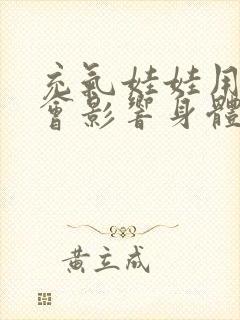 充氣娃娃用
會影響身體
黃立成